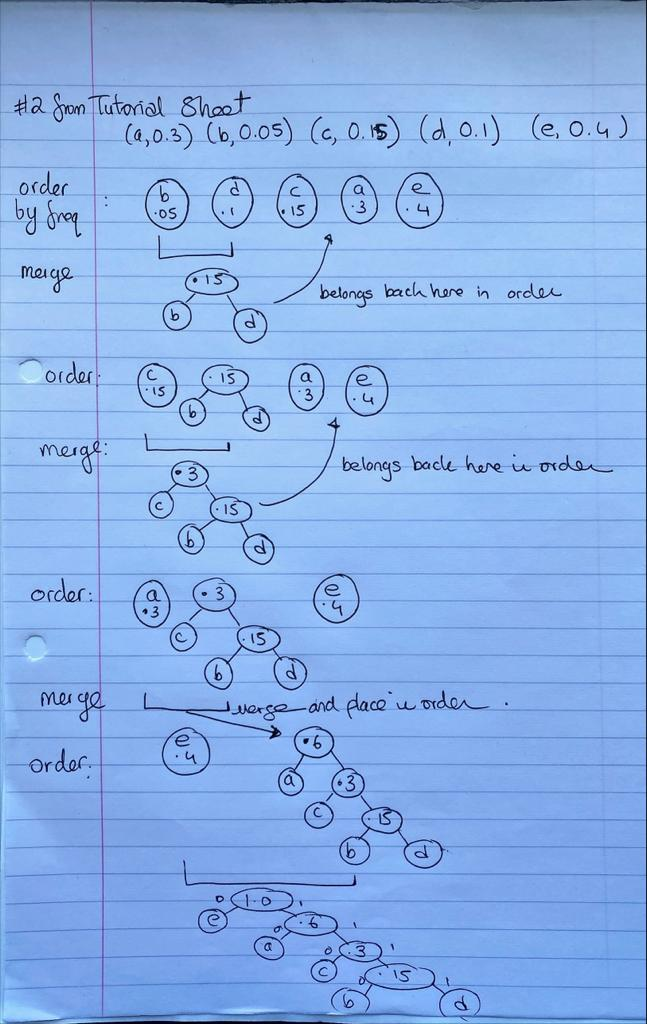 #2 from Tutorial Sheet
(a, 0.3) (b, 0.05) (c, 0.15) (d, 0.1) (e, 0.4)
order by freq :
b .05
d .1
c .15
a .3
e .4
merge
.15
b d
belongs back here in order
order:
c .15
.15
b d
a .3
e .4
merge:
.3
c .15
b d
belongs back here in order
order:
a .3
.3
c .15
b d
e .4
merge
merge and place in order.
order:
e .4
.6
a .3
c .15
b d
0 1.0 1
e .6
0 1
a .3
0 1
c .15
0 1
b d